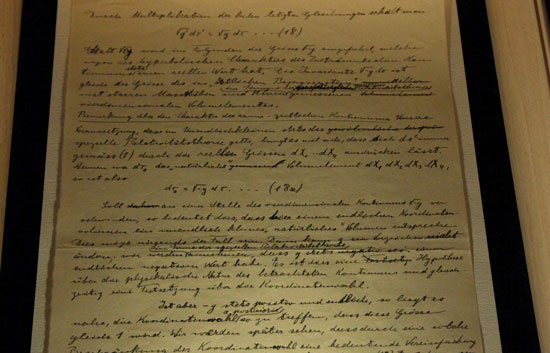 Durch Multiplikation der beiden letzten Gleichungen erhält man
√g' dτ' = √g dτ .... (18)
Statt √g wird im Folgenden die Grösse √-g eingeführt, welche
wegen des hyperbolischen Charakters des zeiträumlichen Kon-
tinuums stets einen reellen Wert hat. Die Invariante √-g dτ ist
gleich der Grösse des im „örtlichen Bezugssystem"
mit starren Massstäben und Uhren im Sinne der speziellen Relativitätstheorie gemessenen
vierdimensionalen Volumelementes.
Bemerkung über den Charakter des raum-zeitlichen Kontinuums. Unsere
Voraussetzung, dass im Unendlichkleinen stets die
spezielle Relativitätstheorie gelte, bringt es mit sich, dass sich ds² immer
gemäss (1) durch die reellen Grössen dX₁..dX₄ ausdrücken lässt.
Nennen wir dτ₀ das „natürliche" Volumelement dX₁ dX₂ dX₃ dX₄,
so ist also
dτ₀ = √-g dτ ..... (18a)
Soll an einer Stelle des vierdimensionalen Kontinuums √-g ver-
schwinden, so bedeutet dies, dass hier einem endlichen Koordinaten-
volumen ein unendlich kleines „natürliches" Volumen entspreche.
Dies möge nirgends der Fall sein. Dann kann g sein Vorzeichen nicht
ändern, wir werden im Sinne der speziellen Relativitätstheorie annehmen, dass g stets einen
endlichen negativen Wert habe. Es ist dies eine Hypothese
über die physikalische Natur des betrachteten Kontinuums und gleich-
zeitig eine Festsetzung über die Koordinatenwahl.
Ist aber -g stets positiv und endlich, so liegt es
nahe, die Koordinatenwahl a posteriori so zu treffen, dass diese Grösse
gleich 1 wird. Wir werden später sehen, dass durch eine solche
Beschränkung der Koordinatenwahl eine bedeutende Vereinfachung